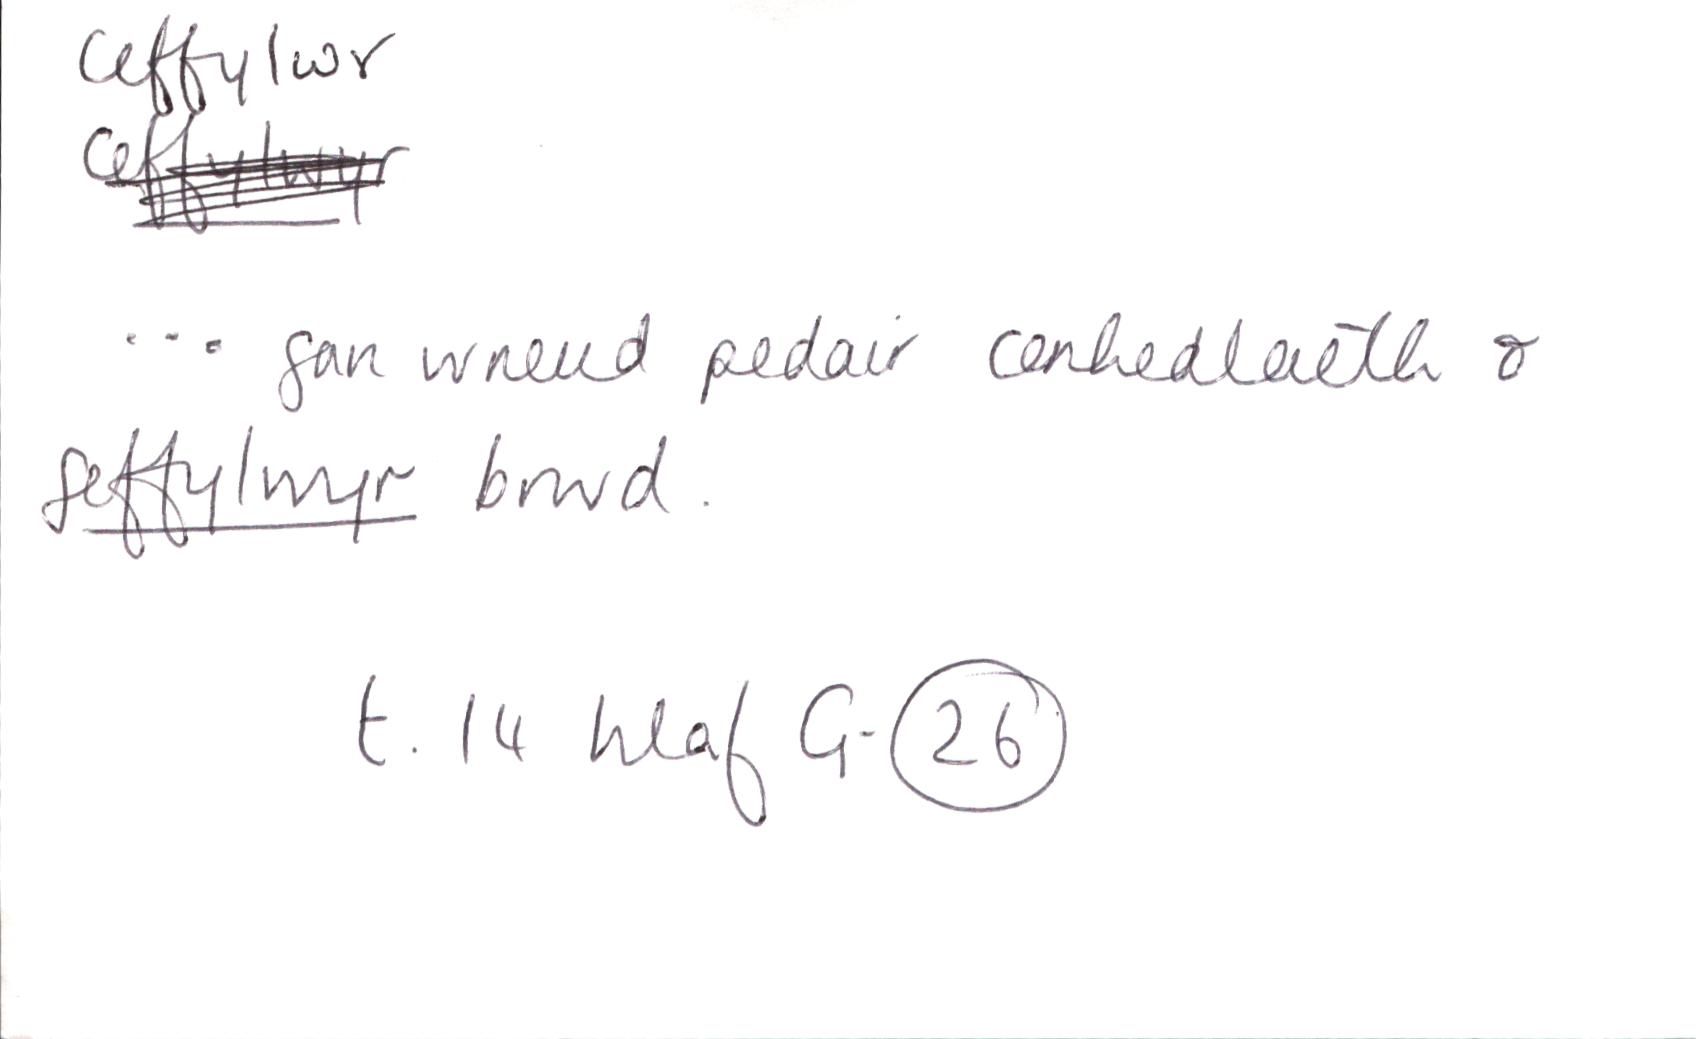 ceffylwr
ceffylwyr
... gan wneud pedair cenhedlaeth o
geffylwyr brwd.
t. 14 hlaf G-26